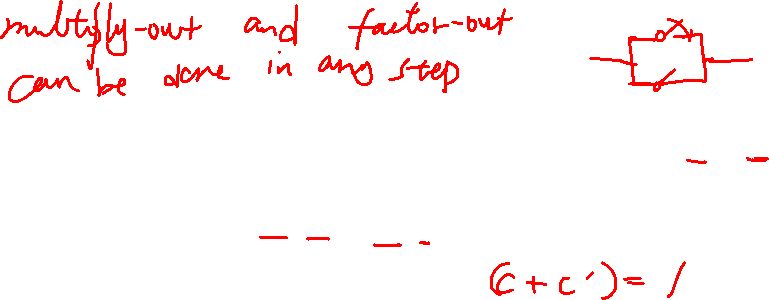 multiply-out and factor-out
can be done in any step
(c + c') = 1